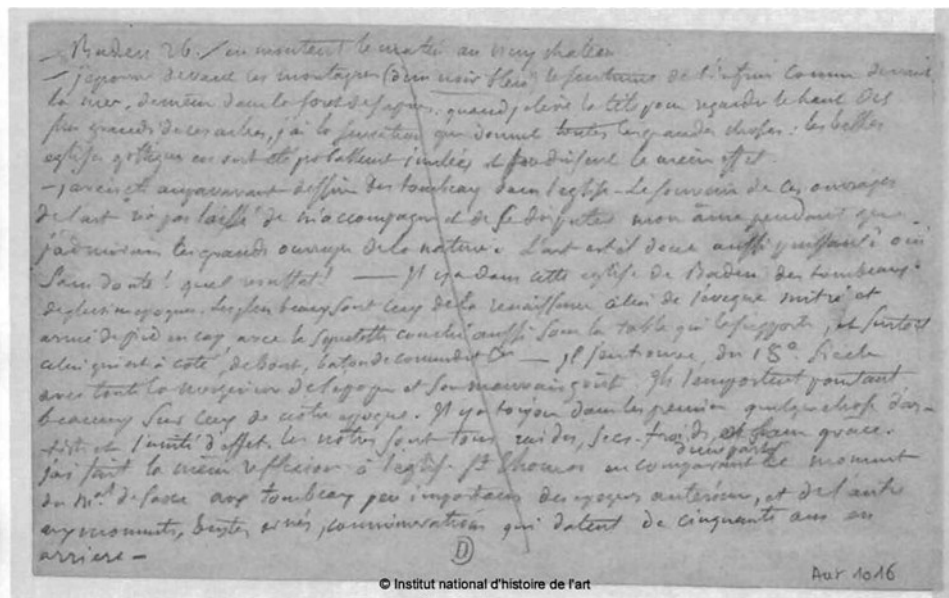 — Baden 26. / en montant le matin au vieux chateau
— j'eprouve devant les montagnes (d'un noir bleu) le sentiment de l'infini comme devant
la mer, de même dans la foret de sapins. quand j'eleve la tête pour regarder le haut des
plus grands de ces arbres, j'ai la sensation que donnent toutes les grandes choses : les belles
eglises gothiques en ont été probablement imitées et produisent le meme effet
— j'avais auparavant dessiné des tombeaux dans l'eglise — Le souvenir de ces ouvrages
de l'art n'a pas laissé de m'accompagner et de se disputer mon âme pendant que
j'admirais les grands ouvrages de la nature. L'art est il donc aussi puissant ? oui
sans doute ! quel resultat ! — Il y a dans cette eglise de Baden des tombeaux
de plusieurs epoques. les plus beaux sont ceux de la renaissance celui de l'eveque mitré et
armé de pied en cap, avec le squelette couché aussi sous la table qui le supporte, et surtout
celui qui est à coté, debout, baton de commandt &c — Il s'en trouve, du 18e siecle
avec tout le mauvais gout. Ils l'emportent pourtant
beaucoup sur ceux de notre epoque. Il y a toujours dans les premiers quelque chose d'ar-
tiste et l'unité d'effet. les nôtres sont tous raides, secs, froids, et sans grace.
J'ai fait la meme reflexion à l'eglise St Thomas en comparant d'une part le monument
du Mal de Saxe aux tombeaux peu importans des epoques anterieures, et de l'autre
aux monuments, bustes, commemoratives qui datent de cinquante ans en
arriere —
D
Aut 1016
© Institut national d'histoire de l'art